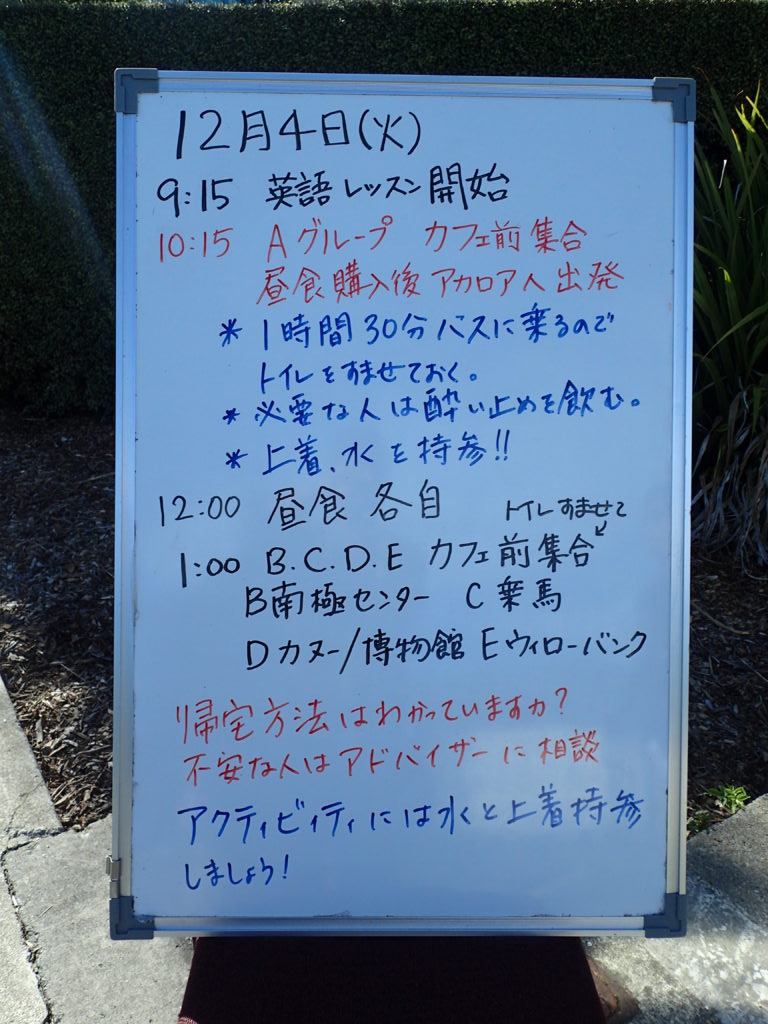 12月4日(火)
9:15 英語レッスン開始
10:15 Aグループ カフェ前集合
昼食購入後アカロア人出発
* 1時間30分バスに乗るので
トイレをすませておく。
* 必要な人は酔い止めを飲む。
* 上着、水を持参!!
12:00 昼食 各自
トイレすませて
1:00 B.C.D.E カフェ前集合
B南極センター C乗馬
Dカヌー/博物館 Eウィローバンク
帰宅方法はわかっていますか?
不安な人はアドバイザーに相談
アクティビィティには水と上着持参
しましょう!